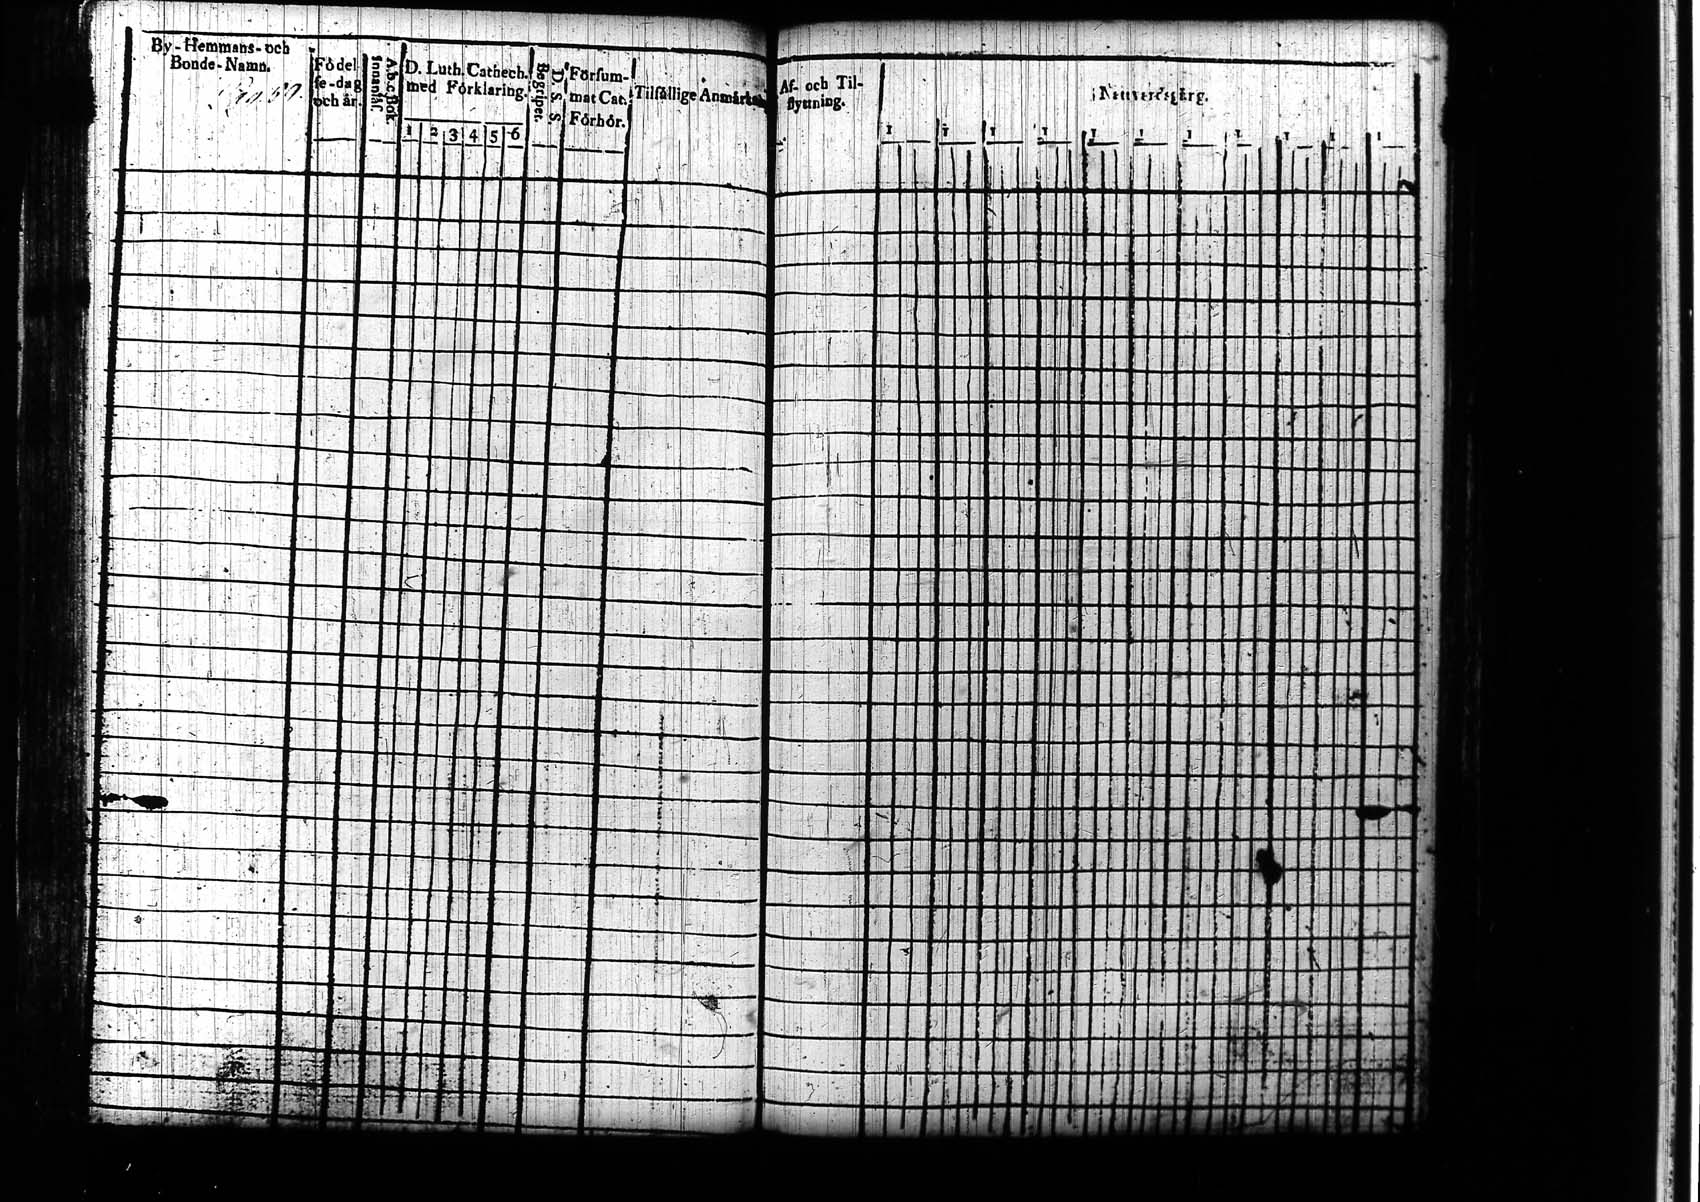 By-Hemmans-och
Bonde-Namn.
Födel
se-dag
och år.
A.b.c.Bok
innanläs.
D. Luth. Cathech.
med Förklaring.
1 2 3 4 5 6
Begriper.
D. S. S.
Försum-
mat Cat.
Förhör.
Tilfällige Anmärkn
Af- och Til-
flyttning.
Nattvardsgång.
1 1 1 1 1 1 1 1 1 1 1